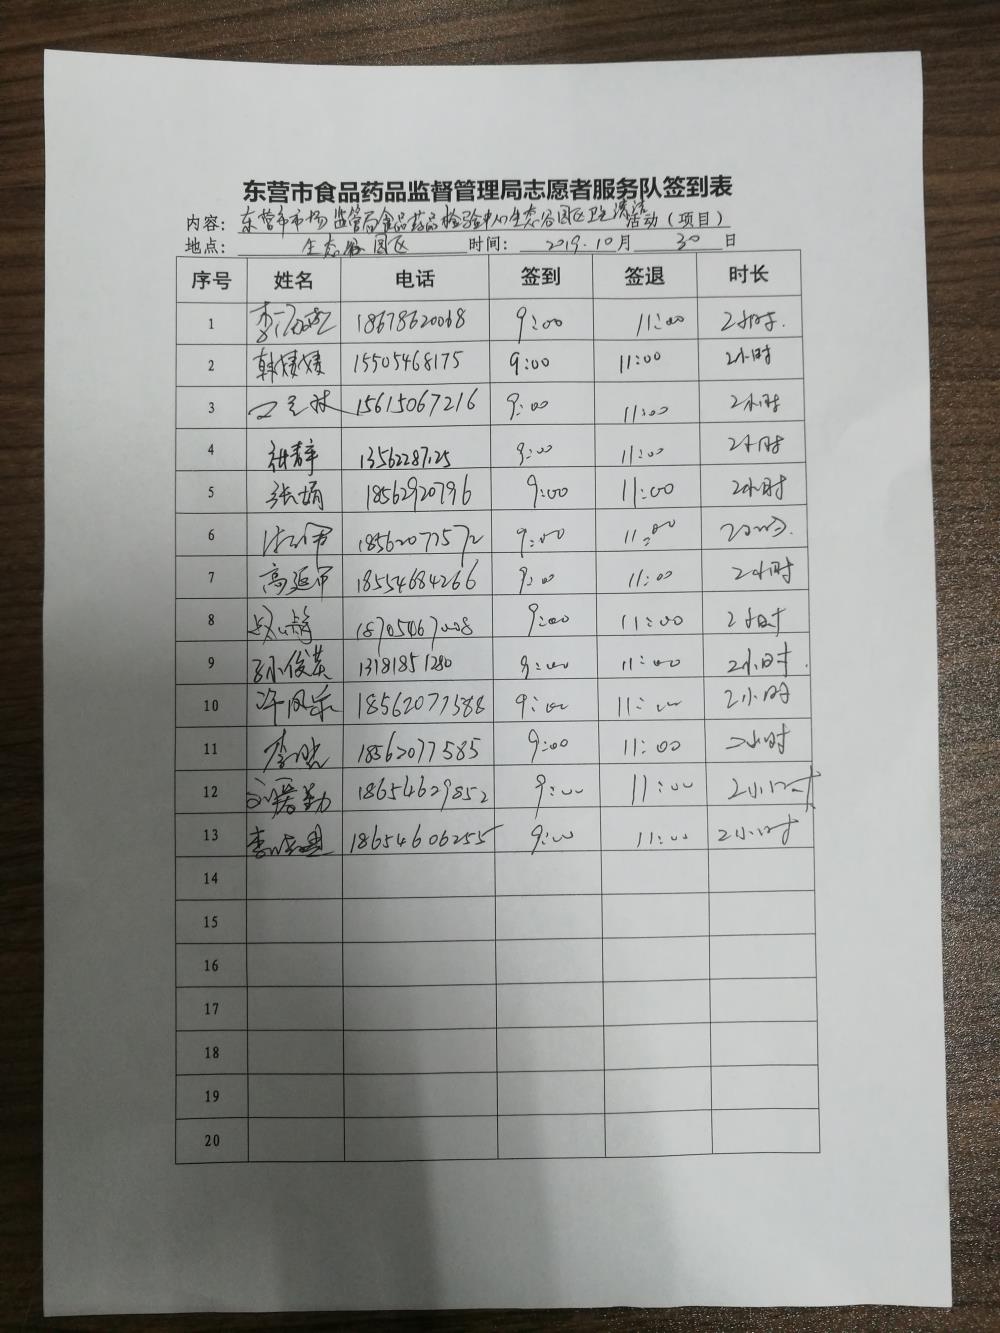 东营市食品药品监督管理局志愿者服务队签到表
内容：东营市市场监管局食品药品检验中心生态谷园区卫生清洁活动（项目）
地点：生态谷园区 时间：2019.10月30日
序号 姓名 电话 签到 签退 时长
1 18678620068 9:00 11:00 2小时.
2 韩媛媛 15505468175 9:00 11:00 2小时
3 15615067216 9:00 11:00 2小时
4 13562287125 9:00 11:00 2小时
5 张娟 18562920796 9:00 11:00 2小时
6 18562077572 9:00 11:00
7 高延军 18554684266 9:00 11:00 2小时
8 18705467008 9:00 11:00 2小时
9 孙俊英 13181851280 9:00 11:00 2小时.
10 许凤乐 18562077588 9:00 11:00 2小时
11 李晓 18562077585 9:00 11:00 2小时
12 18654629852 9:00 11:00 2小时
13 18654606255 9:00 11:00 2小时
14
15
16
17
18
19
20